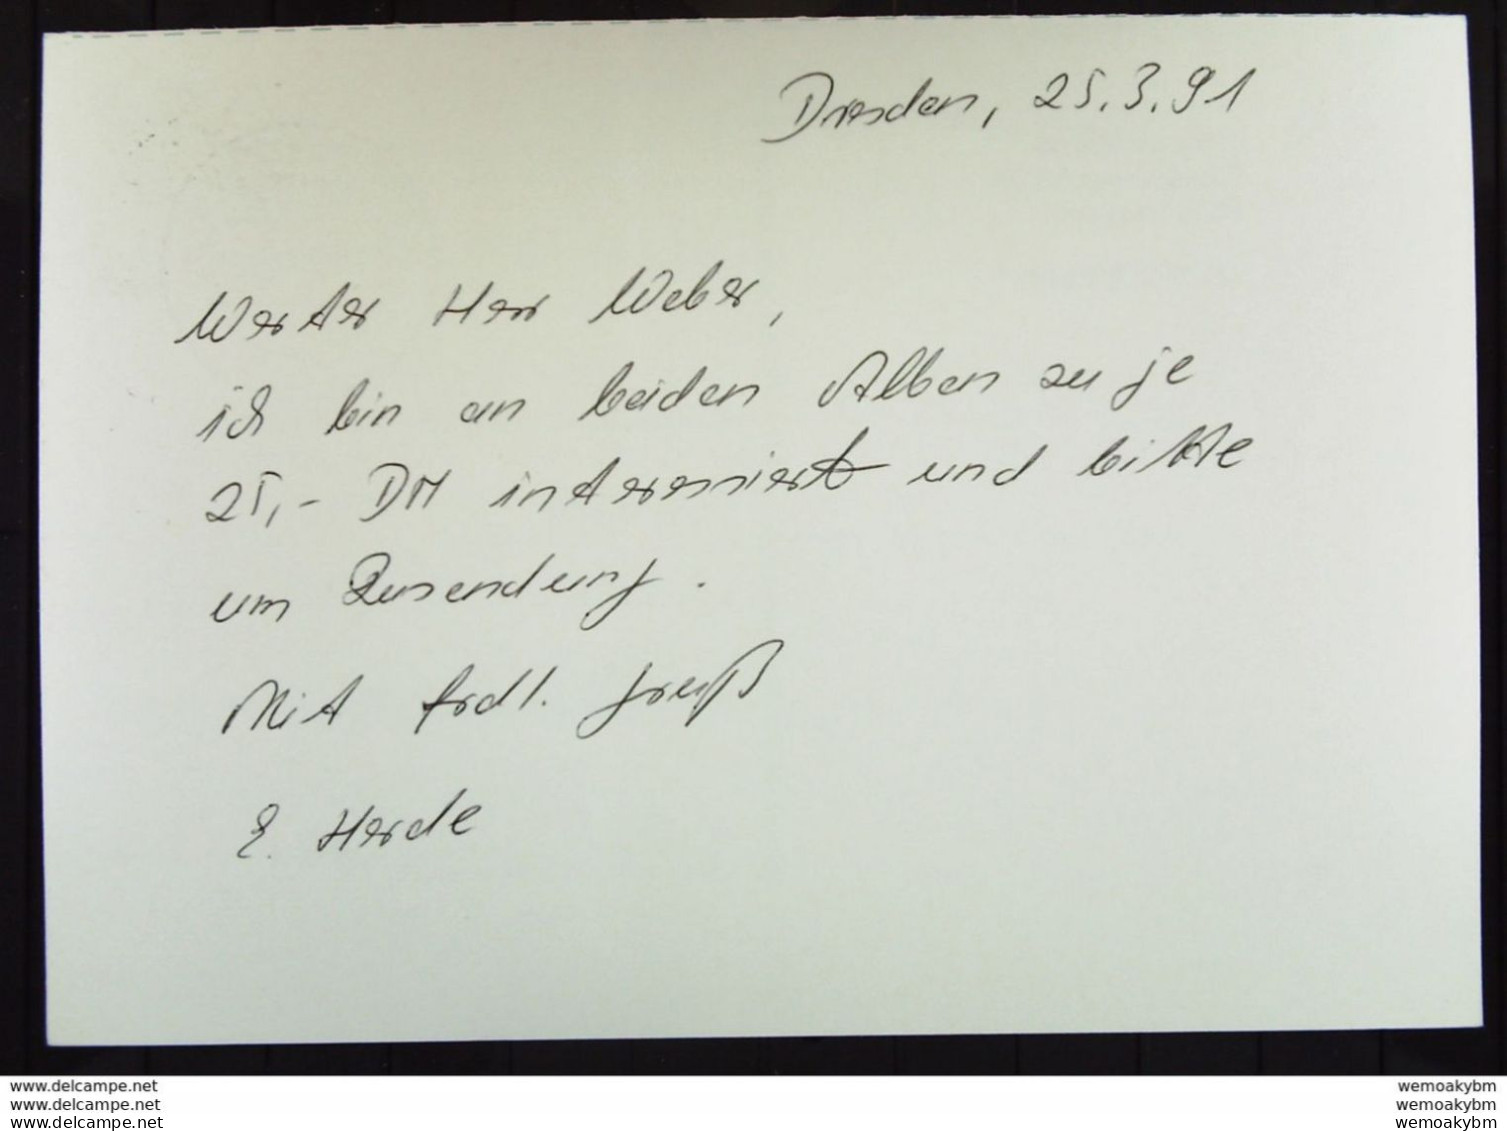 Dresden, 25.3.91
Werter Herr Weber,
ich bin an beiden Alben zu je
25,- DM interessiert und bitte
um Zusendung.
Mit frdl. Gruß
E. Herde
www.delcampe.net
www.delcampe.net
www.delcampe.net
wemoakybm
wemoakybm
wemoakybm